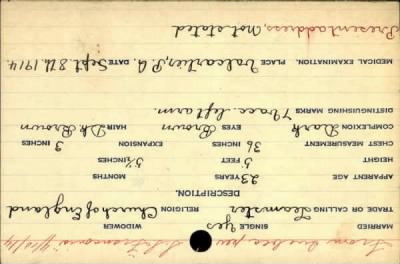 MARRIED SINGLE Yes WIDOWER
TRADE OR CALLING Teamster RELIGION Church of England
DESCRIPTION.
APPARENT AGE 23 YEARS MONTHS
HEIGHT 5 FEET 5½ INCHES
CHEST MEASUREMENT 36 INCHES EXPANSION 3 INCHES
COMPLEXION Dark EYES Brown HAIR Dk Brown
DISTINGUISHING MARKS 1 Vacc. left arm.
MEDICAL EXAMINATION. PLACE Valcartier, P.Q. DATE Sept 8th 1914.
Present address, not stated